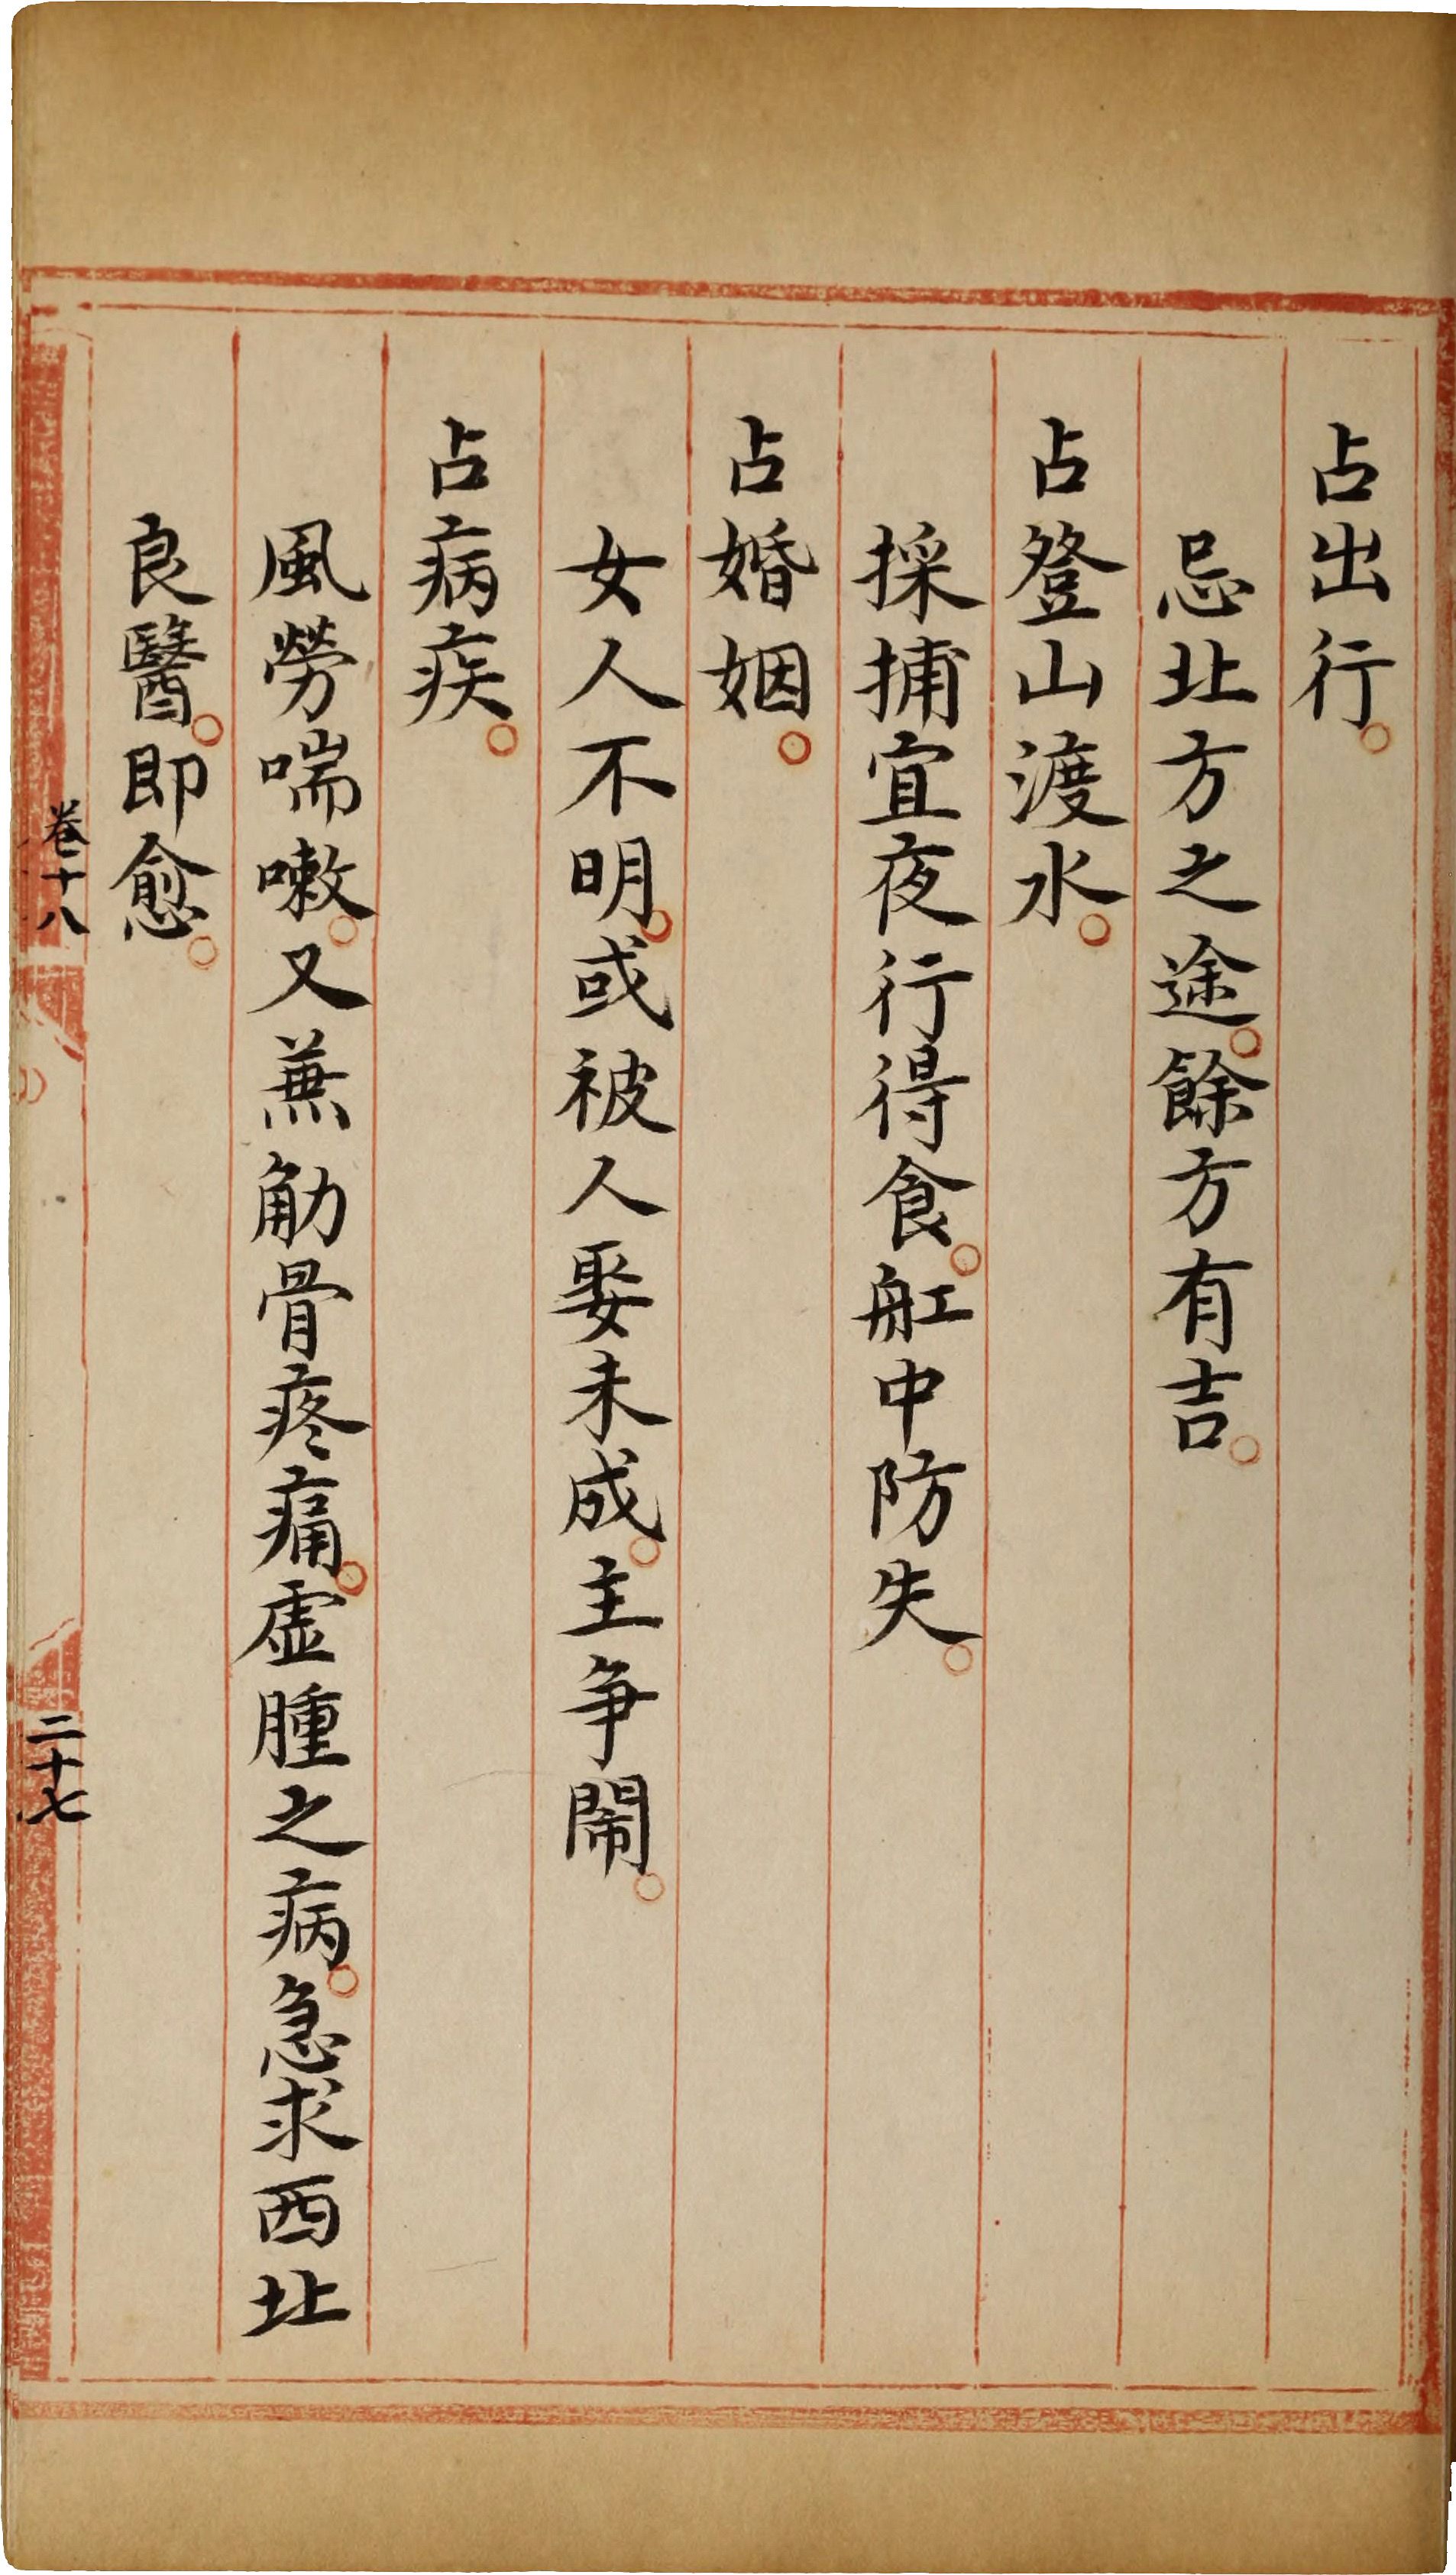 占出行。
忌北方之途。餘方有吉。
占登山渡水。
採捕宜夜行得食。舡中防失。
占婚姻。
女人不明。或被人娶未成。主争鬧。
占病疾。
風勞喘嗽。又蕪觔骨疼痛。虚腫之病。急求西北
良醫。即愈。
卷十八
二十七